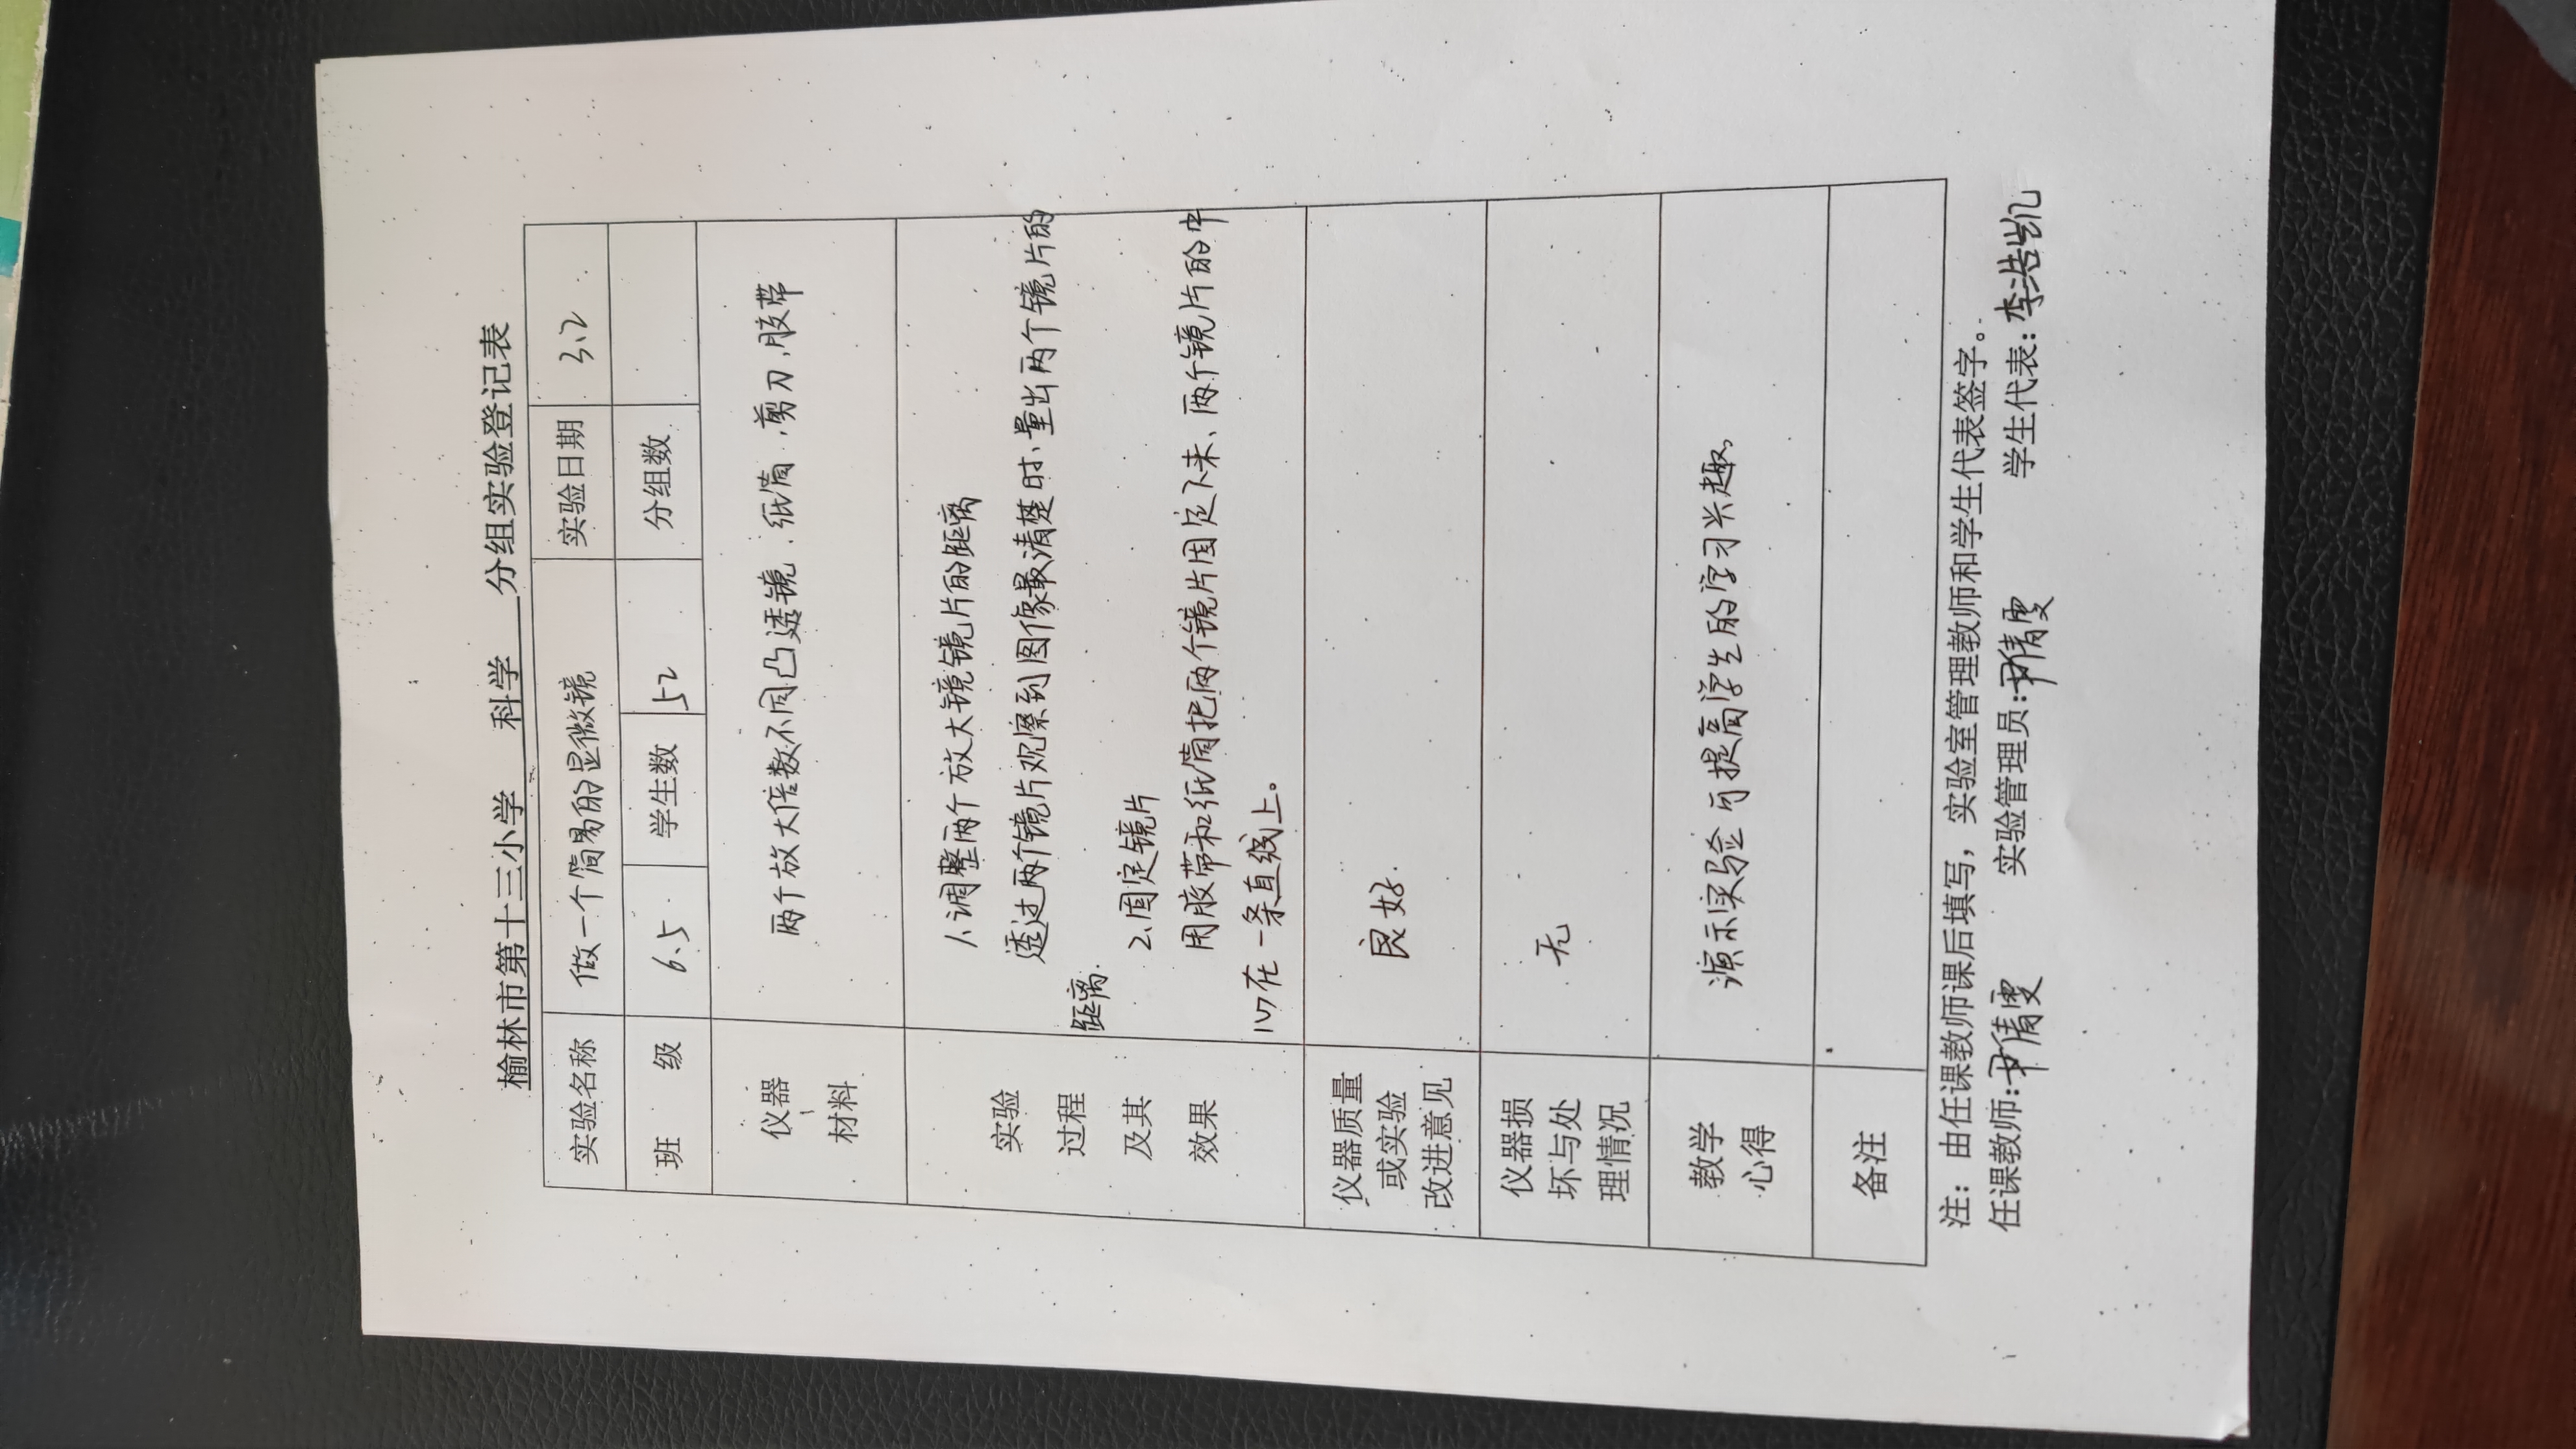 榆林市第十三小学 科学 分组实验登记表
实验名称 做一个简易的显微镜 实验日期 3.2
班 级 6.5 学生数 52 分组数
仪器
材料
两个放大倍数不同凸透镜、纸筒、剪刀、胶带
实验
过程
及其
效果
1、调整两个放大镜镜片的距离
透过两个镜片观察到图像最清楚时、量出两个镜片的
距离.
2、固定镜片
用胶带和纸筒把两个镜片固定下来、两个镜片的中
心在一条直线上。
仪器质量
或实验
改进意见
良好.
仪器损
坏与处
理情况
无
教学
心得
演示实验可提高学生的学习兴趣、
备注
注：由任课教师课后填写，实验室管理教师和学生代表签字。
任课教师:尹倩雯 实验管理员:尹倩雯 学生代表:李浩凯